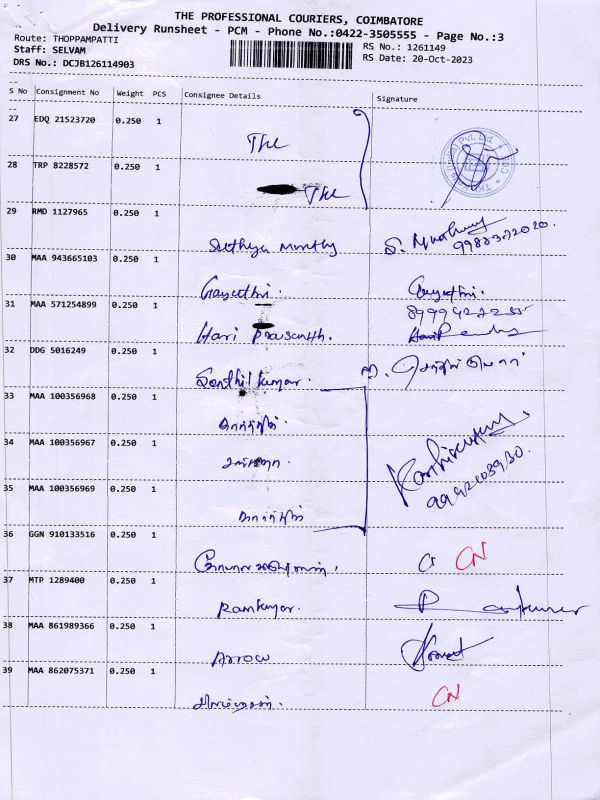 THE PROFESSIONAL COURIERS, COIMBATORE
Delivery Runsheet - PCM - Phone No.:0422-3505555 - Page No.:3
Route: THOPPAMPATTI
RS No.: 1261149
Staff: SELVAM
RS Date: 20-Oct-2023
DRS No.: DCJB126114903
S No Consignment No Weight PCS Consignee Details Signature
27 EDQ 21523720 0.250 1
The
28 TRP 8228572 0.250 1
The
29 RMD 1127965 0.250 1
Sathya Moorthy
30 MAA 943665103 0.250 1
Gayathri. Gayathri.
31 MAA 571254899 0.250 1
Hari Prasanth.
32 DDG 5016249 0.250 1
Senthil kumar.
33 MAA 100356968 0.250 1
கார்த்திக்.
34 MAA 100356967 0.250 1
35 MAA 100356969 0.250 1
கார்த்திக்
36 GGN 910133516 0.250 1
CN
37 MTP 1289400 0.250 1
Ramkumar.
38 MAA 861989366 0.250 1
Arrow
39 MAA 862075371 0.250 1
CN